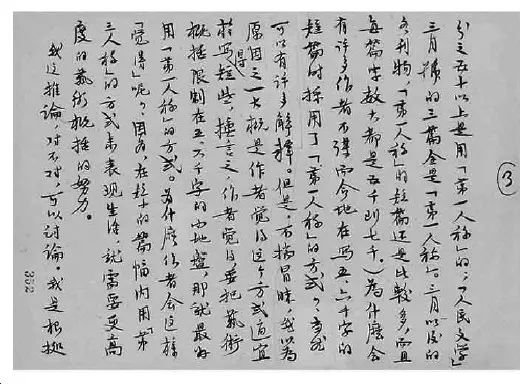 ③
分之五十以上是用「第一人称」的；「人民文学」
三月號的三篇全是「第一人称」。三月以後的
各刊物，「第一人称」的短篇还是比較多，而且
每篇字数大都是五千到七千。）为什麽会
有许多作者不谋而合地在写五、六千字的
短篇时採用了「第一人称」的方式？当然
可以有许多解释。但是，不揣冒昧，我以为
原因之一大概是作者觉得这个方式适宜
於写得短些，换言之，作者觉得要把艺術
概括限制在五、六千字的小地盤，那就最好
用「第一人称」的方式。为什麽作者会这样
「觉得」呢？因为，在较小的篇幅内用「第
三人称」的方式来表现生活，就需要更高
度的藝術概括的努力。
我这推論，对不对，可以讨論。我是根据
352